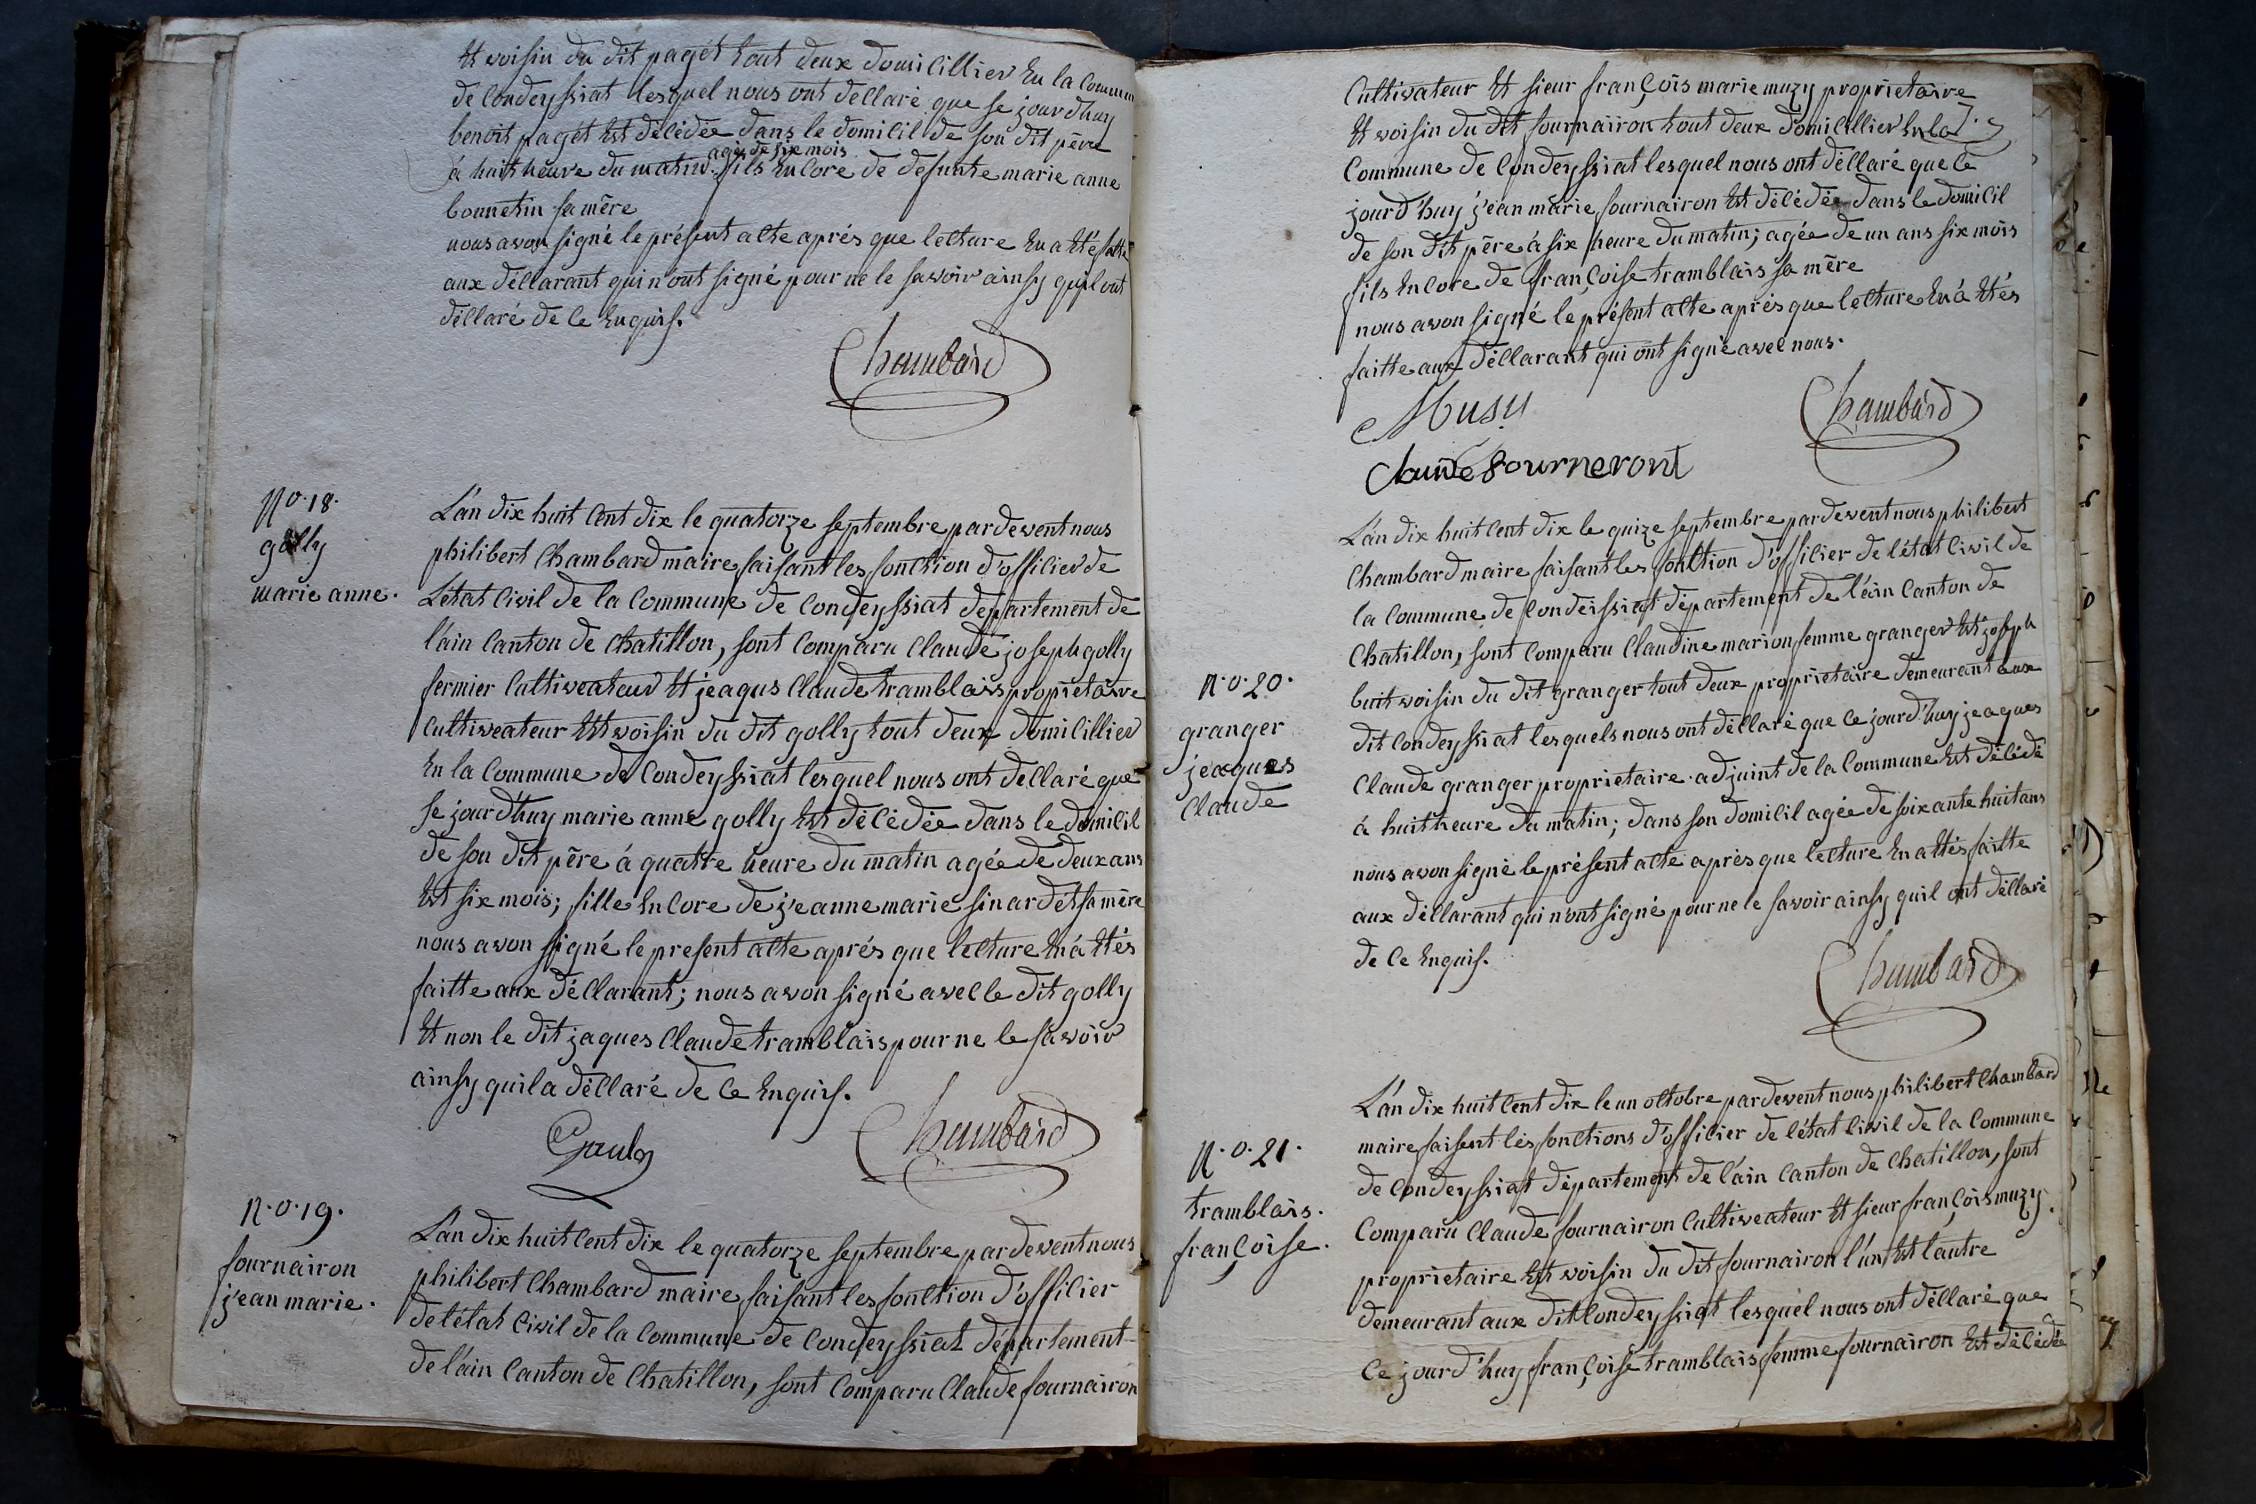 Et voisin du dit paget tout deux domicillier En la Commun
de Condeyssiat lesquel nous ont dellaré que se jourdhuy
benoit paget Est délédée dans le domicil de son dit père
agée de six mois
à huit heure du matin. fils Encore de defunte marie anne
bonnetin sa mère
nous avon signé le présent alte aprés que lecture En a Eté faitte
aux déllarant qui n'ont signé pour ne le savoir ainsy quil ont
déllaré de Ce Enquis.
Chambard
No. 18.
golly
marie anne.
L'an dix huit Cent dix le quatorze septembre pardevent nous
philibert Chambard maire faisant les fonction d'officier de
L'état Civil de la Commune de Condeyssiat département de
l'ain Canton de Chatillon, sont Comparu Claude joseph golly
fermier Cultiveateur Et jeaqus Claude tramblais propriétaire
Cultiveateur Et voisin du dit golly tout deux domicillier
En la Commune de Condeyssiat lesquel nous ont dellaré que
se jourdhuy marie anne golly Est délédée dans le domicil
de son dit père à quatre heure du matin agée de deux ans
Et six mois; fille Encore de j'eanne marie sinardét sa mère
nous avon signé le present alte aprés que lecture En à Etés
faitte aux déllarant; nous avon signé avec le dit golly
Et non le dit jaques Claude tramblais pour ne le savoir
ainsy quil a déllaré de Ce Enquis.
Gauly
Chambard
N.o. 19.
fournairon
j'ean marie.
L'an dix huit Cent dix le quatorze septembre pardevent nous
philibert Chambard maire faisant les fonction d'officier
de l'état Civil de la Commune de Condeyssiat département
de l'ain Canton de Chatillon, sont Comparu Claude fournairon
Cultivateur Et sieur françois marie muzy proprietaire
Et voisin du dit fournairon tout deux domicillier En la
Commune de Condeyssiat lesquel nous ont déllaré que Ce
jourd'huy j'ean marie fournairon Est délédée dans le domicil
de son dit père à six heure du matin; agée de un ans six mois
fils Encore de françoise tramblais sa mère
nous avon signé le présent alte aprés que lecture En à Etés
faitte aux déllarant qui ont signé avec nous.
Musy
Chambard
Claude fourneront
L'an dix huit Cent dix le quize septembre pardevent nous philibert
Chambard maire faisant les fonltion d'officier de l'état Civil de
la Commune de Condeissiat département de l'ain Canton de
Chatillon, sont Comparu Claudine marion femme granger Et joseph
buit voisin du dit granger tout deux proprietaire demeurant aux
dit Condeyssiat lesquels nous ont déllaré que Ce jourd'huy jeaques
N.o. 20.
granger
jeaques
Claude
Claude granger proprietaire. adjoint de la Commune Est délédé
à huit heure du matin; dans son domicil agée de soixante huit ans
nous avon signé le présent alte aprés que lecture En a Etés faitte
aux déllarant qui n'ont signé pour ne le savoir ainsy quil ont déllaré
de Ce Enquis.
Chambard
N.o. 21.
tramblais.
françoise.
L'an dix huit Cent dix le un octobre pardevent nous philibert Chambard
maire faisent les fonctions d'officier de l'état Civil de la Commune
de Condeyssiat département de l'ain Canton de Chatillon, sont
Comparu Claude fournairon Cultiveateur Et sieur françois muzy.
proprietaire Et voisin du dit fournairon l'un Et l'autre
demeurant aux dit Condeyssiat lesquel nous ont déllaré que
Ce jourd'huy françoise tramblais femme fournairon Est délédée